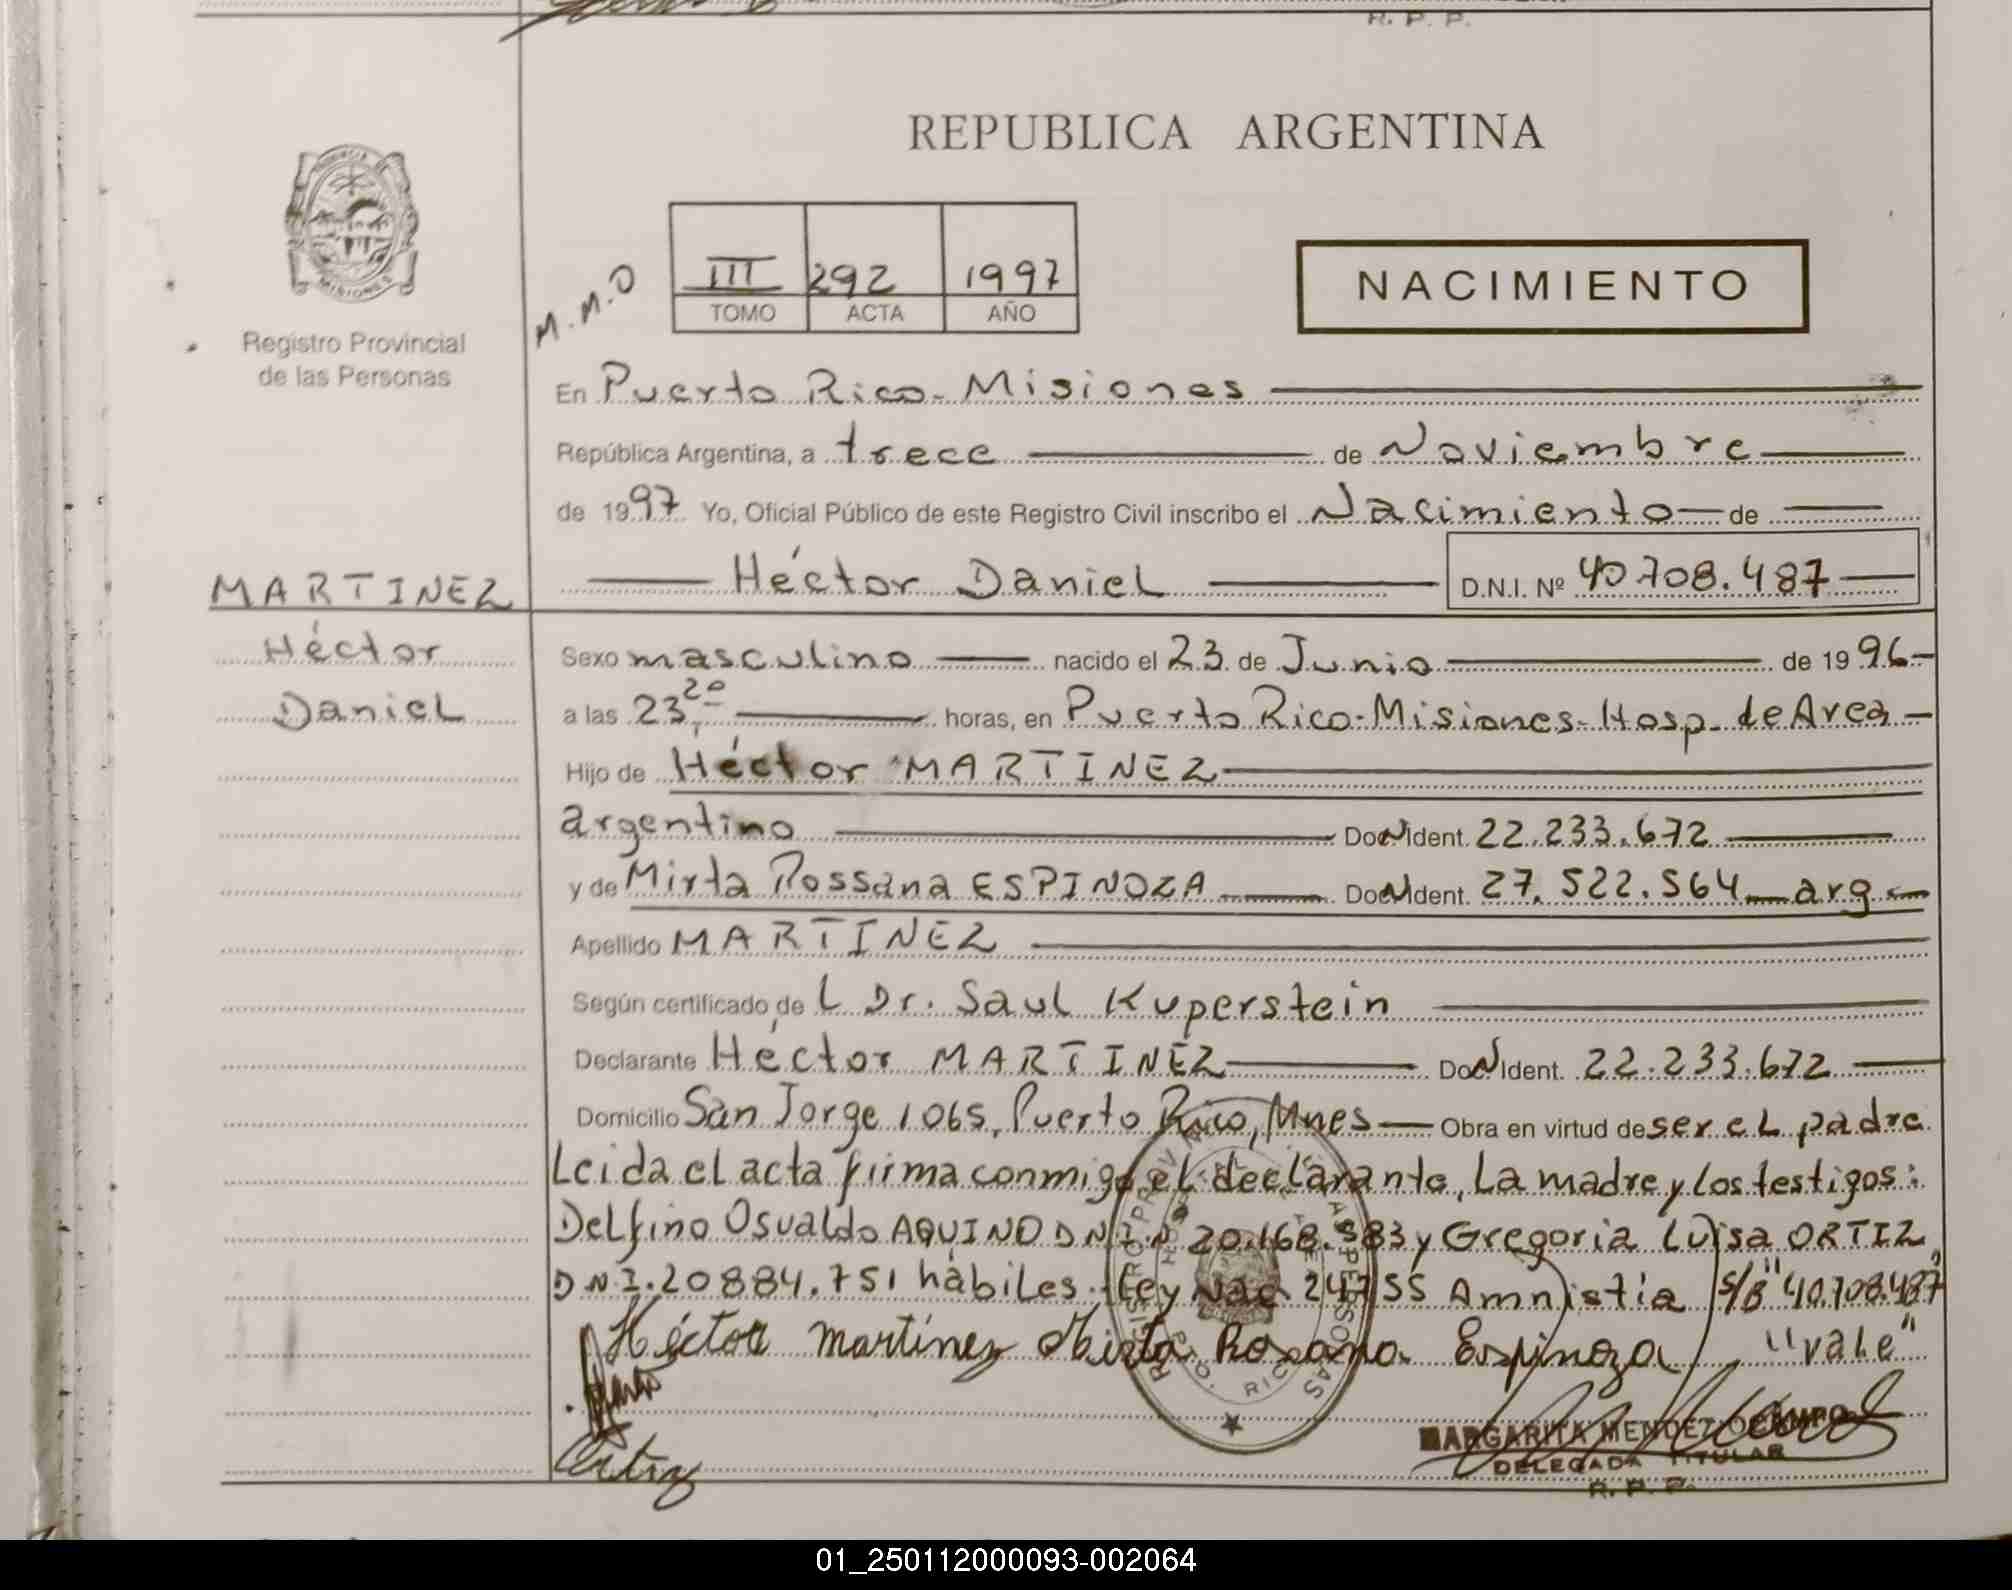 R. P. P.
REPUBLICA ARGENTINA
PROVINCIA DE
MISIONES
Registro Provincial
de las Personas
M.M.O
III 292 1997
TOMO ACTA AÑO
NACIMIENTO
En Puerto Rico-Misiones
República Argentina, a trece de Noviembre
de 1997 Yo, Oficial Público de este Registro Civil inscribo el Nacimiento de
Héctor Daniel D.N.I. Nº 40708.487
MARTINEZ
Héctor
Daniel
Sexo masculino nacido el 23 de Junio de 1996
a las 23,20 horas, en Puerto Rico-Misiones-Hosp. de Area
Hijo de Héctor MARTINEZ
argentino Doc N Ident. 22.233.672
y de Mirta Rossana ESPINOZA Doc N Ident. 27.522.564 arg.
Apellido MARTINEZ
Según certificado de L Dr. Saul Kuperstein
Declarante Héctor MARTINEZ Doc N Ident. 22.233.672
Domicilio San Jorge 1065, Puerto Rico, Mnes Obra en virtud de ser el padre
Leida el acta firma conmigo el declarante, La madre y los testigos:
Delfino Osvaldo AQUINO D N.I.N 20.168.583 y Gregoria Luisa ORTIZ
D N.I. 20884.751 habiles. Ley Nac 24755 Amnistia s/B "40.708.487"
Héctor Martínez Mirta Rosana Espinoza "vale"
Ortiz
MARGARITA MENDEZ OCAMPO
DELEGADA TITULAR
R. P. P.
01_250112000093-002064